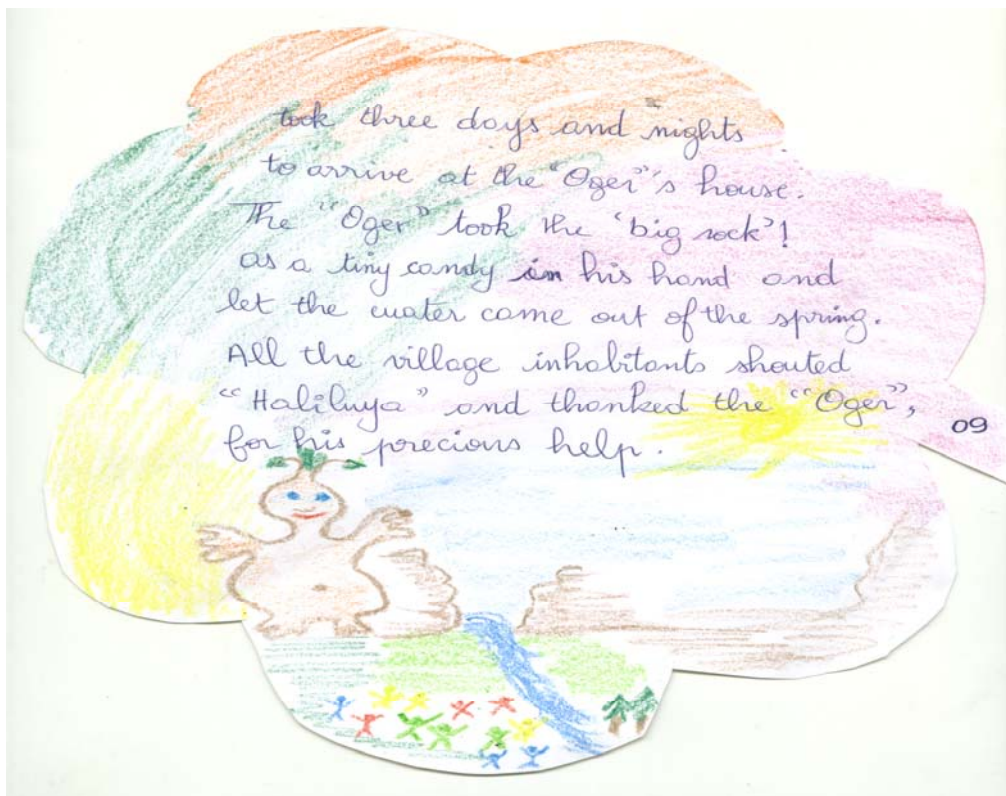 took three days and nights
to arrive at the "Oger"'s house.
The "Oger" took the 'big rock'!
as a tiny candy in his hand and
let the water come out of the spring.
All the village inhabitants shouted
"Haliluya" and thanked the "Oger",
for his precious help.
09